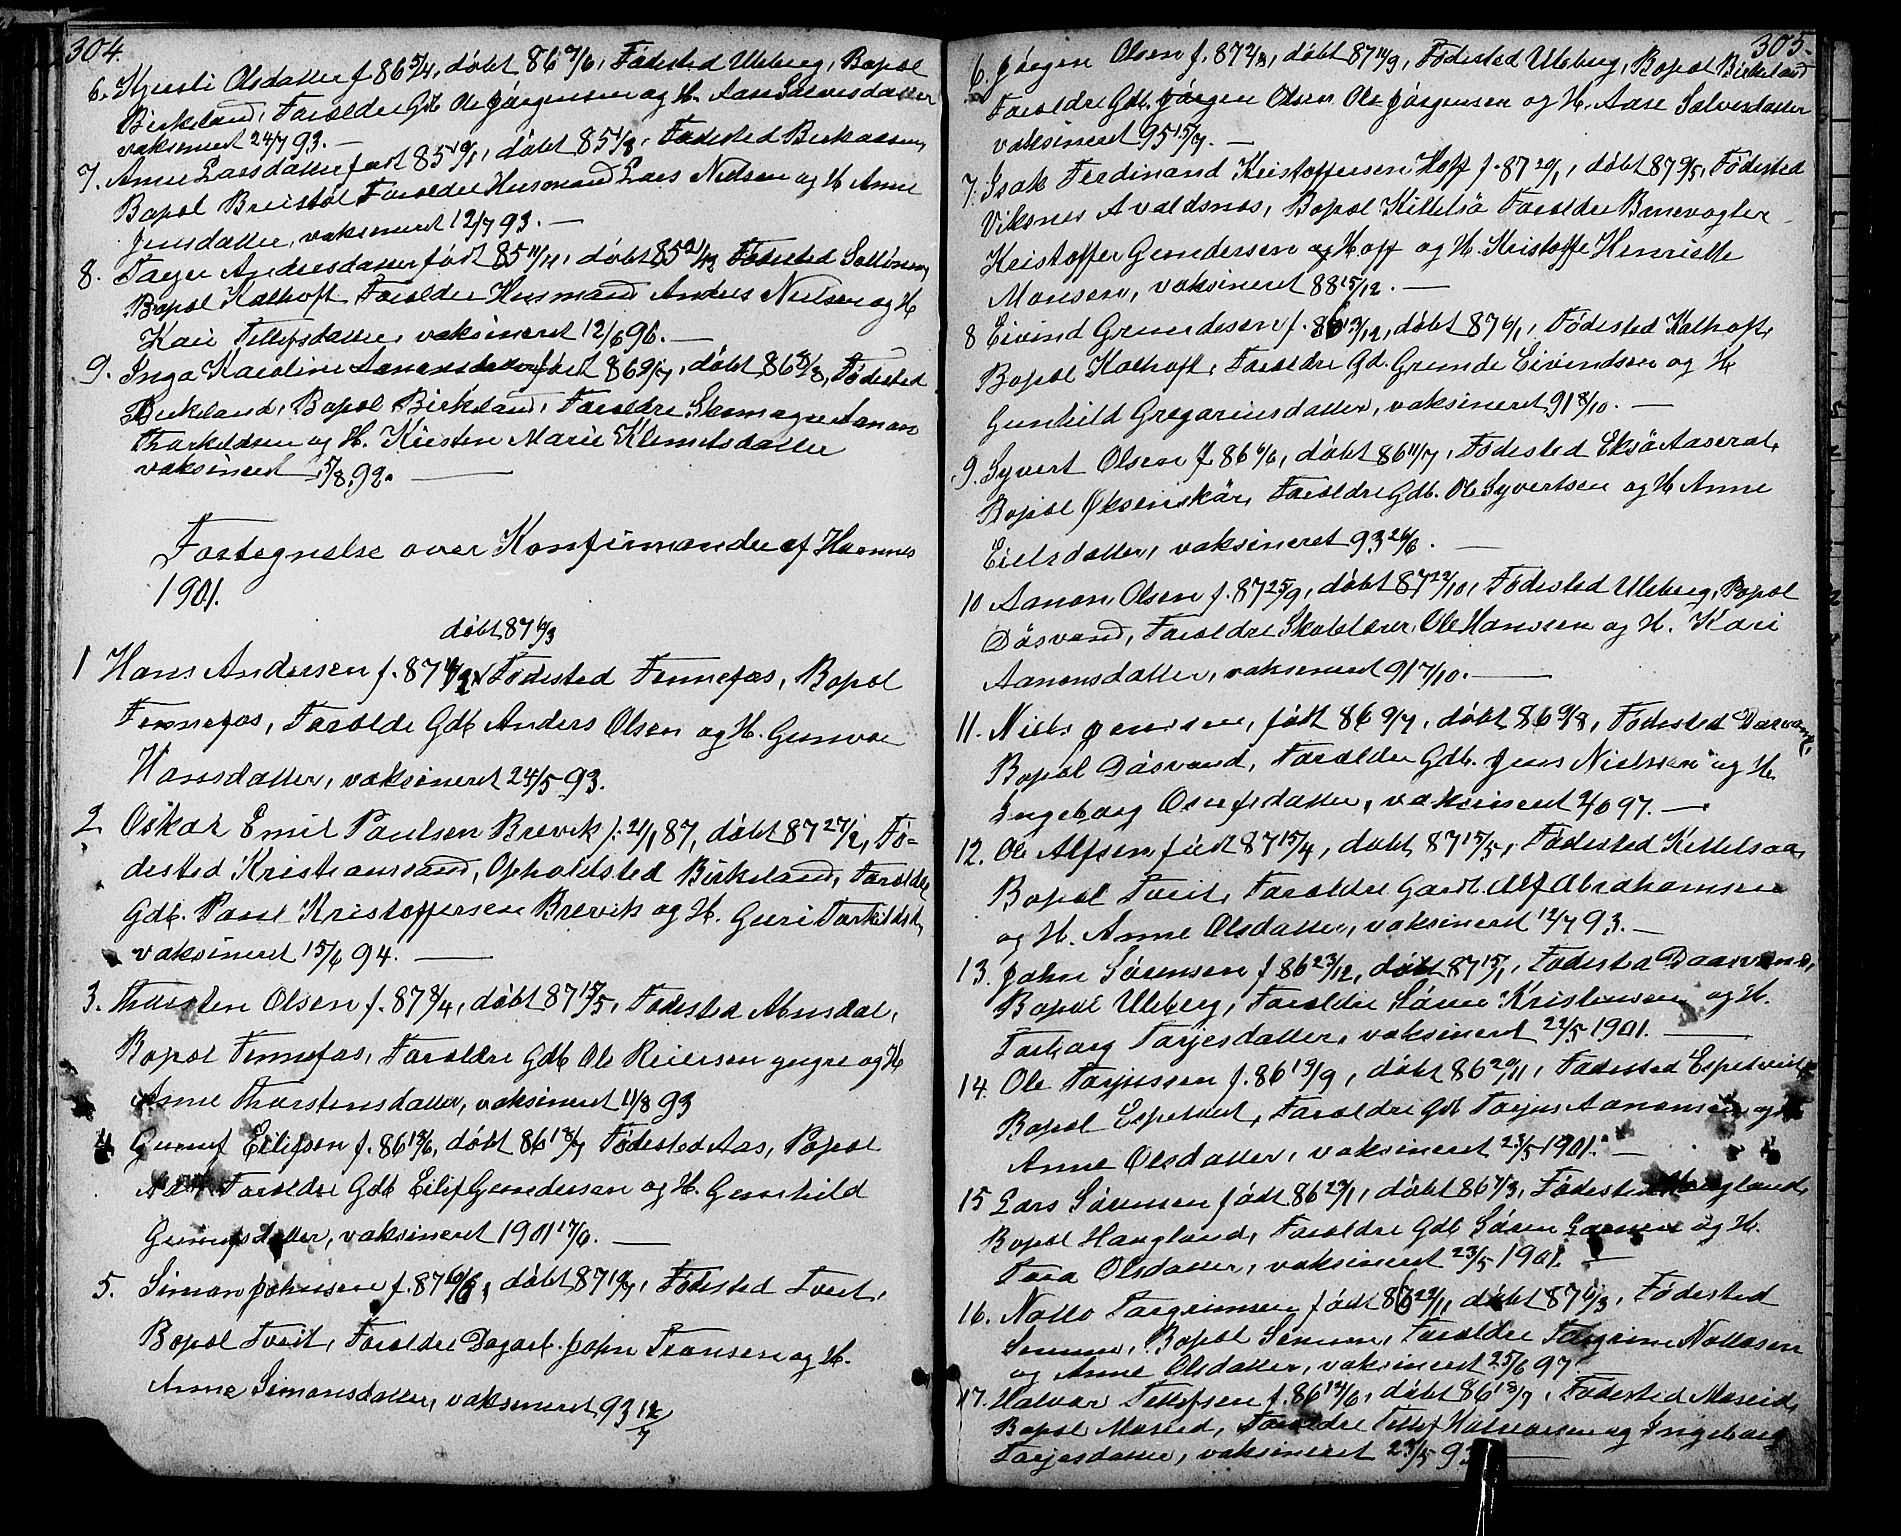 304.
6. Kjersti Olsdatter f. 86 5/4, døbt 86 7/6, Fødested Uleberg, Bopæl
Birkeland, Forældre Gdb Ole Jørgensen og H. Aase Salvesdatter
vaksineret 24/7 93. —
7. Anne Larsdatter født 85, døbt 85, Fødested Birkaasen,
Bopæl Breistøl Forældre Husmand Lars Nielsen og H Anne
Jensdatter, vaksineret 12/7 93. —
8. Targer Andersdatter født 85 11/11, døbt 85, Fødested
Bopæl Kalhoft Forældre Husmand Anders Nielsen og H
Kari Tellefsdatter, vaksineret 12/6 96. —
9. Inga Karoline Aanonsdatter født 86 9/7, døbt 86 8/8, Fødested
Birkeland, Bopæl Birkeland, Forældre Skomager Aanon
Thorkildsen og H. Kirsten Marie Klemetsdatter
vaksineret 5/8 92. —
Fortegnelse over Konfirmander af Hornnes
1901.
døbt 87 6/3
1 Hans Andersen f. 87 4/2, Fødested Fennefos, Bopæl
Fennefos, Forældre Gdb Anders Olsen og H. Gunvor
Hansdatter, vaksineret 24/5 93.
2 Oskar Emil Paulsen Brevik f. 21/1 87, døbt 87 27/2, Fø-
dested Kristianssand, Opholdsted Birkeland, Forældre
Gdb. Paul Kristoffersen Brevik og H. Guri Torkildsd.,
vaksineret 15/6 94. —
3. Thorsten Olsen f. 87 8/4, døbt 87 15/5, Fødested Abusdal,
Bopæl Fennefos, Forældre Gdb Ole Reiersen yngre og H
Anne Thorstensdatter, vaksineret 11/8 93
4 Gunuf Eilifsen f. 86 13/6, døbt 86 18/7 Fødested Aas, Bopæl
Aas Forældre Gdb Eilif Gundersen og H. Gunhild
Gunufsdatter, vaksineret 1901 17/6. —
5. Simon Johnsen f. 87, døbt 87 10/7, Fødested Tveit,
Bopæl Tveit, Forældre Dagarb. John Fransen og H.
Anne Simonsdatter, vaksineret 93 12/7
305.
6. Jørgen Olsen f. 87 2/8, døbt 87 11/9, Fødested Uleberg, Bopæl Birkeland
Forældre Gdb. Jørgen Olsen Ole Jørgensen og H. Aase Salvesdatter
vaksineret 95 15/7. —
7. Isak Ferdinand Kristoffersen Hoff f. 87 20/1, døbt 87 9/5, Fødested
Viksnes Avaldsnes, Bopæl Kittelsø Forældre Banevogter
Kristoffer Gundersen og Hoff og H. Kristoffe Henriette
Monsen, vaksineret 88 15/12. —
8 Eivind Grundesen f. 86 13/12, døbt 87 6/1, Fødested Kalhoft,
Bopæl Kalhoft, Forældre Gd. Grunde Eivindsen og H
Gunhild Gregoriusdatter, vaksineret 91 8/10. —
9. Syvert Olsen f. 86 6/6, døbt 86 11/7, Fødested Eksø Aaseral,
Bopæl Øksenskar, Forældre Gdb. Ole Syvertsen og H Anne
Eilefsdatter, vaksineret 93 26/6. —
10 Aanon Olsen f. 87 25/9, døbt 87 22/10, Fødested Uleberg, Bopæl
Dåsvand, Forældre Skolelærer Ole Hanssen og H. Kari
Aanonsdatter, vaksineret 91 7/10. —
11. Niels Jensen, født 86 9/7, døbt 86 9/8, Fødested Daasvand,
Bopæl Dåsvand, Forældre Gdb. Jens Nielssen og H.
Ingeborg Osufsdatter, vaksineret 97. —
12. Ole Alfsen født 87 15/4, døbt 87 15/5, Fødested Kittelsaa,
Bopæl Tveit, Forældre Gardb Alf Abrahamsen
og H. Anne Olsdatter, vaksineret 12/7 93. —
13. John Sørensen f. 86 23/12, døbt 87 15/1, Fødested Daasvand,
Bopæl Uleberg, Forældre Søren Kristensen og H.
Torborg Torjesdatter, vaksineret 22/5 1901. —
14. Ole Torjussen f. 86 19/9, døbt 86 20/11, Fødested Espetveit
Bopæl Espetveit, Forældre Gdb Torjus Aanonsen og H
Anne Olsdatter, vaksineret 23/5 1901. —
15 Lars Sørensen født 86 29/1, døbt 86 7/3, Fødested Haugland,
Bopæl Haugland, Forældre Gdb Søren Larsen og H.
Tora Olsdatter, vaksineret 23/5 1901. —
16. Notto Torgrimsen født 86 22/11, døbt 87 6/3, Fødested
Senum, Bopæl Senum, Forældre Torgrim Nottosen
og Anne Olsdatter, vaksineret 25/6 97.
17. Halvor Tellefsen f. 86 12/6, døbt 86 18/7, Fødested Moseid,
Bopæl Moseid, Forældre Tellef Halvorsen og Ingeborg
Torjesdatter, vaksineret 23/5 93 —